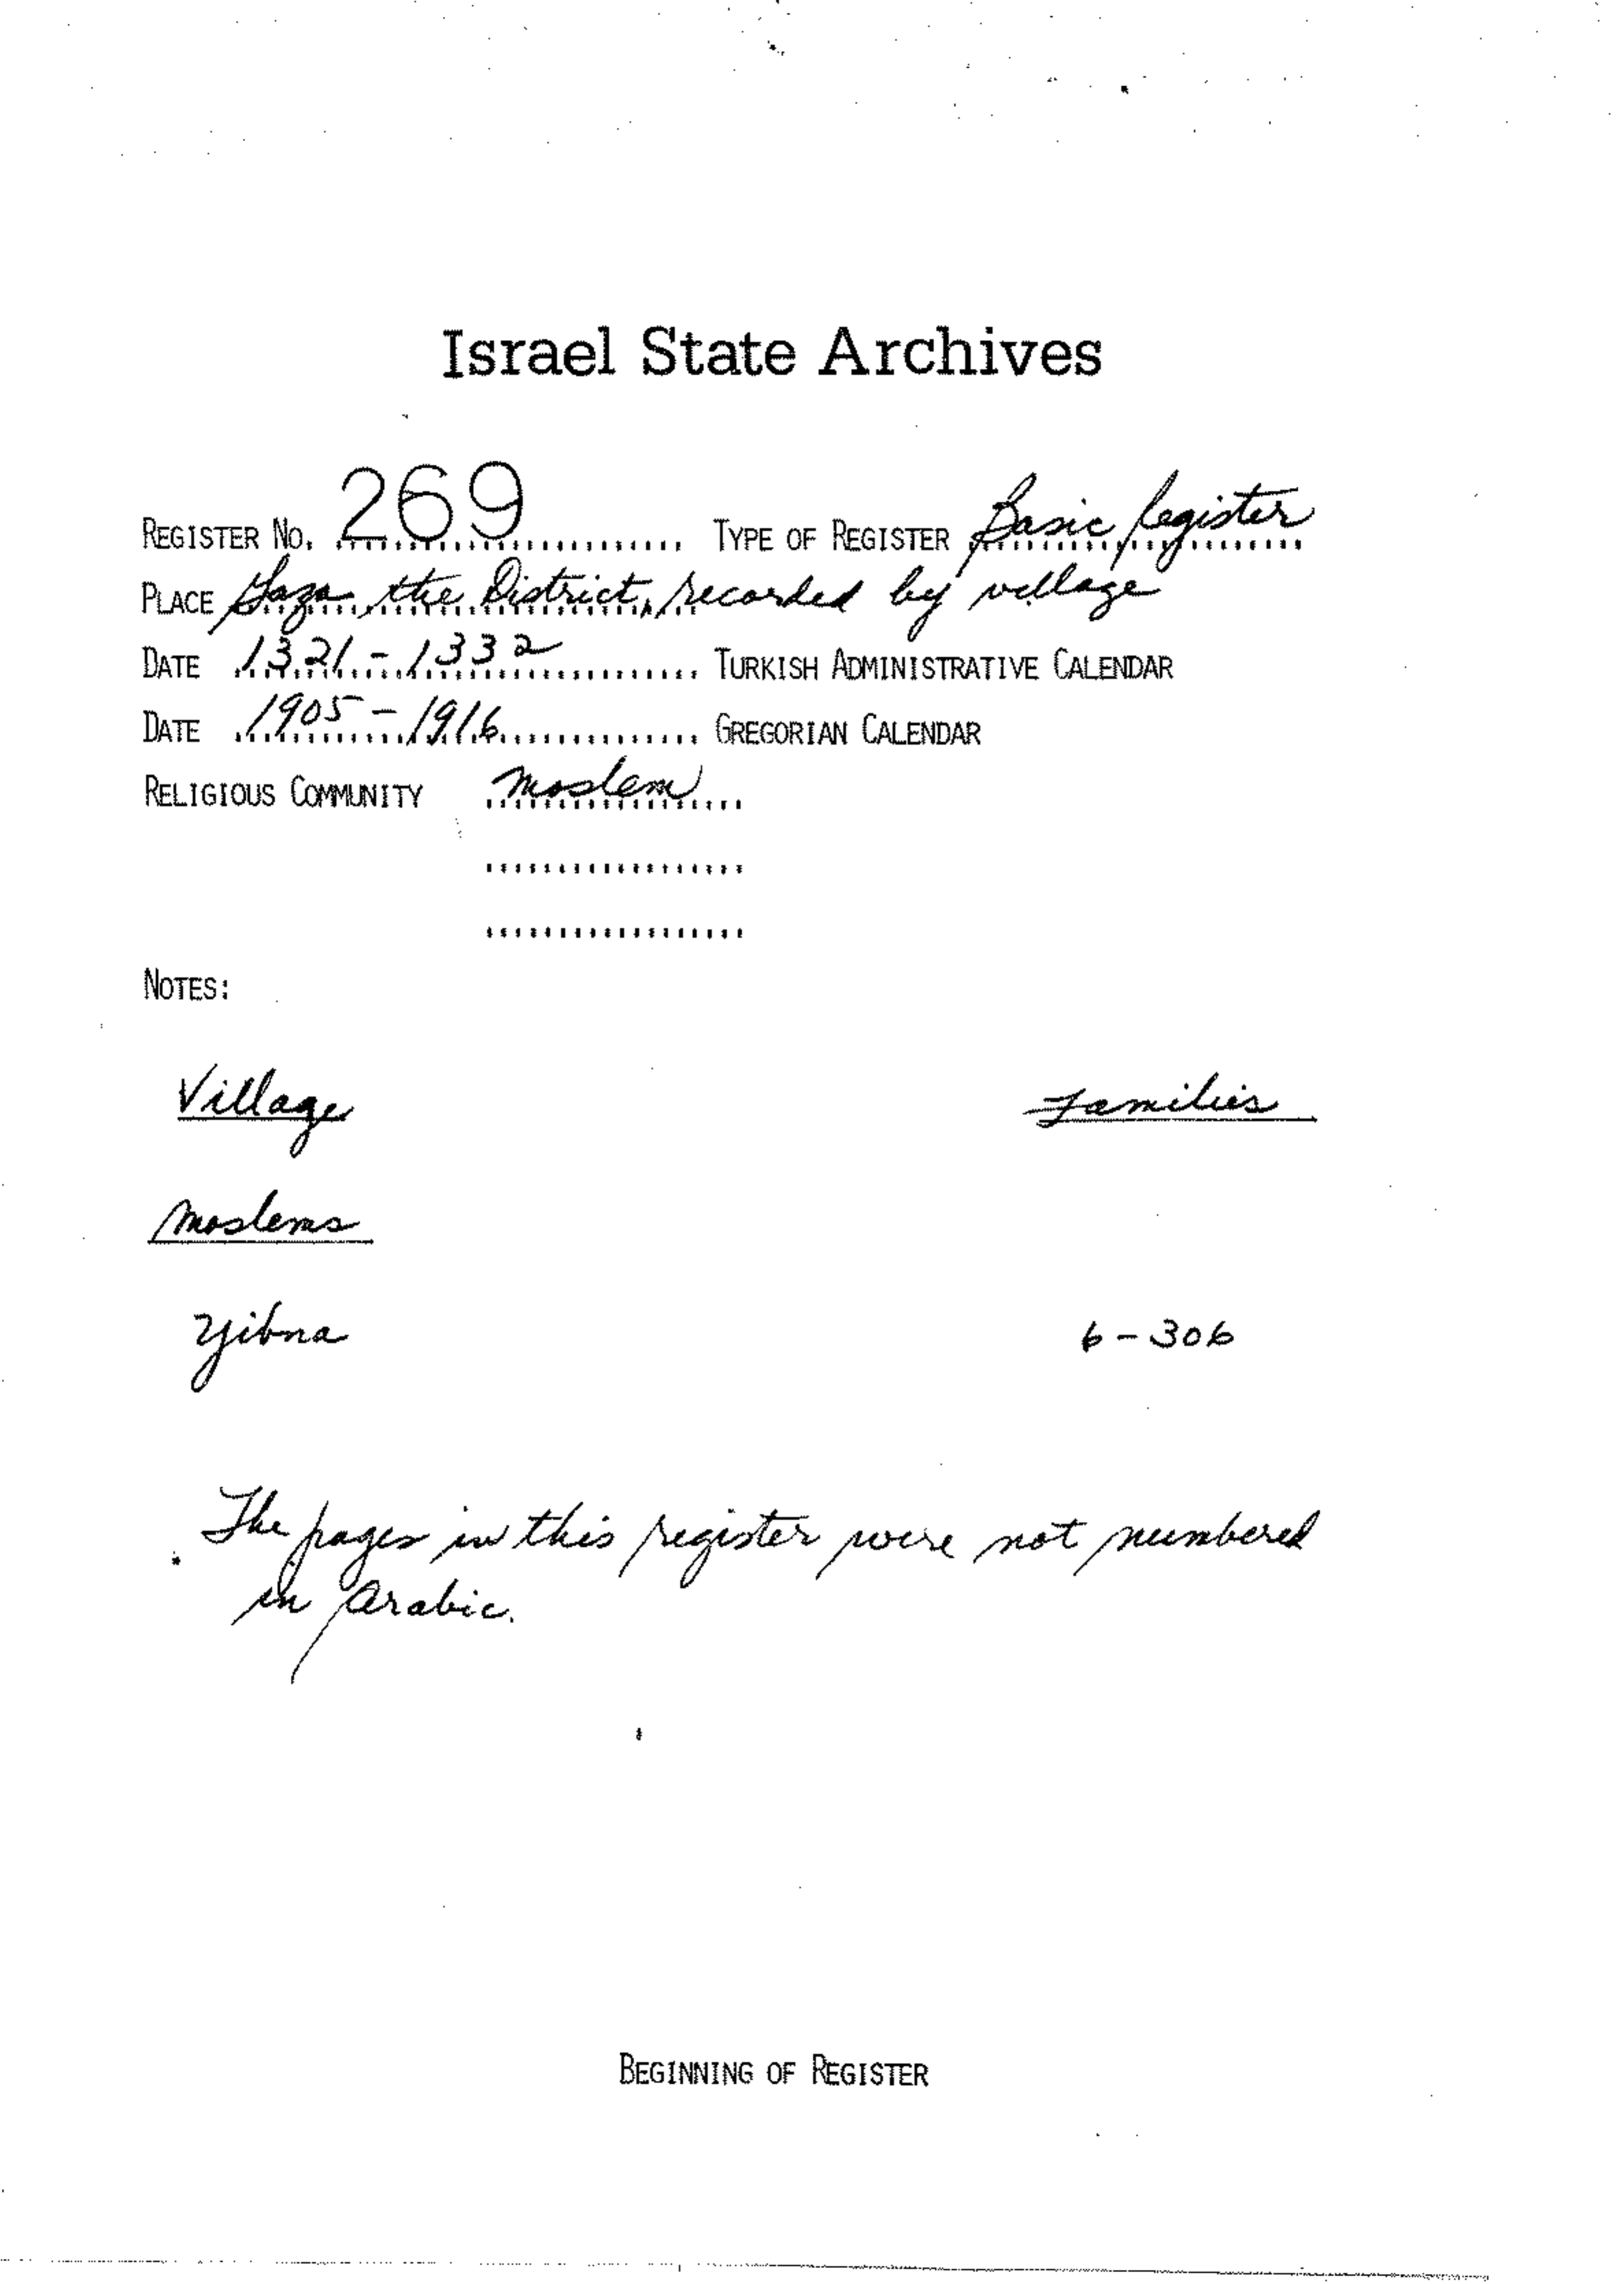 Israel State Archives
REGISTER NO. 269 TYPE OF REGISTER Basic Register
PLACE Gaza, the District, recorded by village
DATE 1321 - 1332 TURKISH ADMINISTRATIVE CALENDAR
DATE 1905 - 1916 GREGORIAN CALENDAR
RELIGIOUS COMMUNITY Moslem
NOTES:
Village Families
Moslems
Yibna 6 - 306
The pages in this register were not numbered
in Arabic.
BEGINNING OF REGISTER